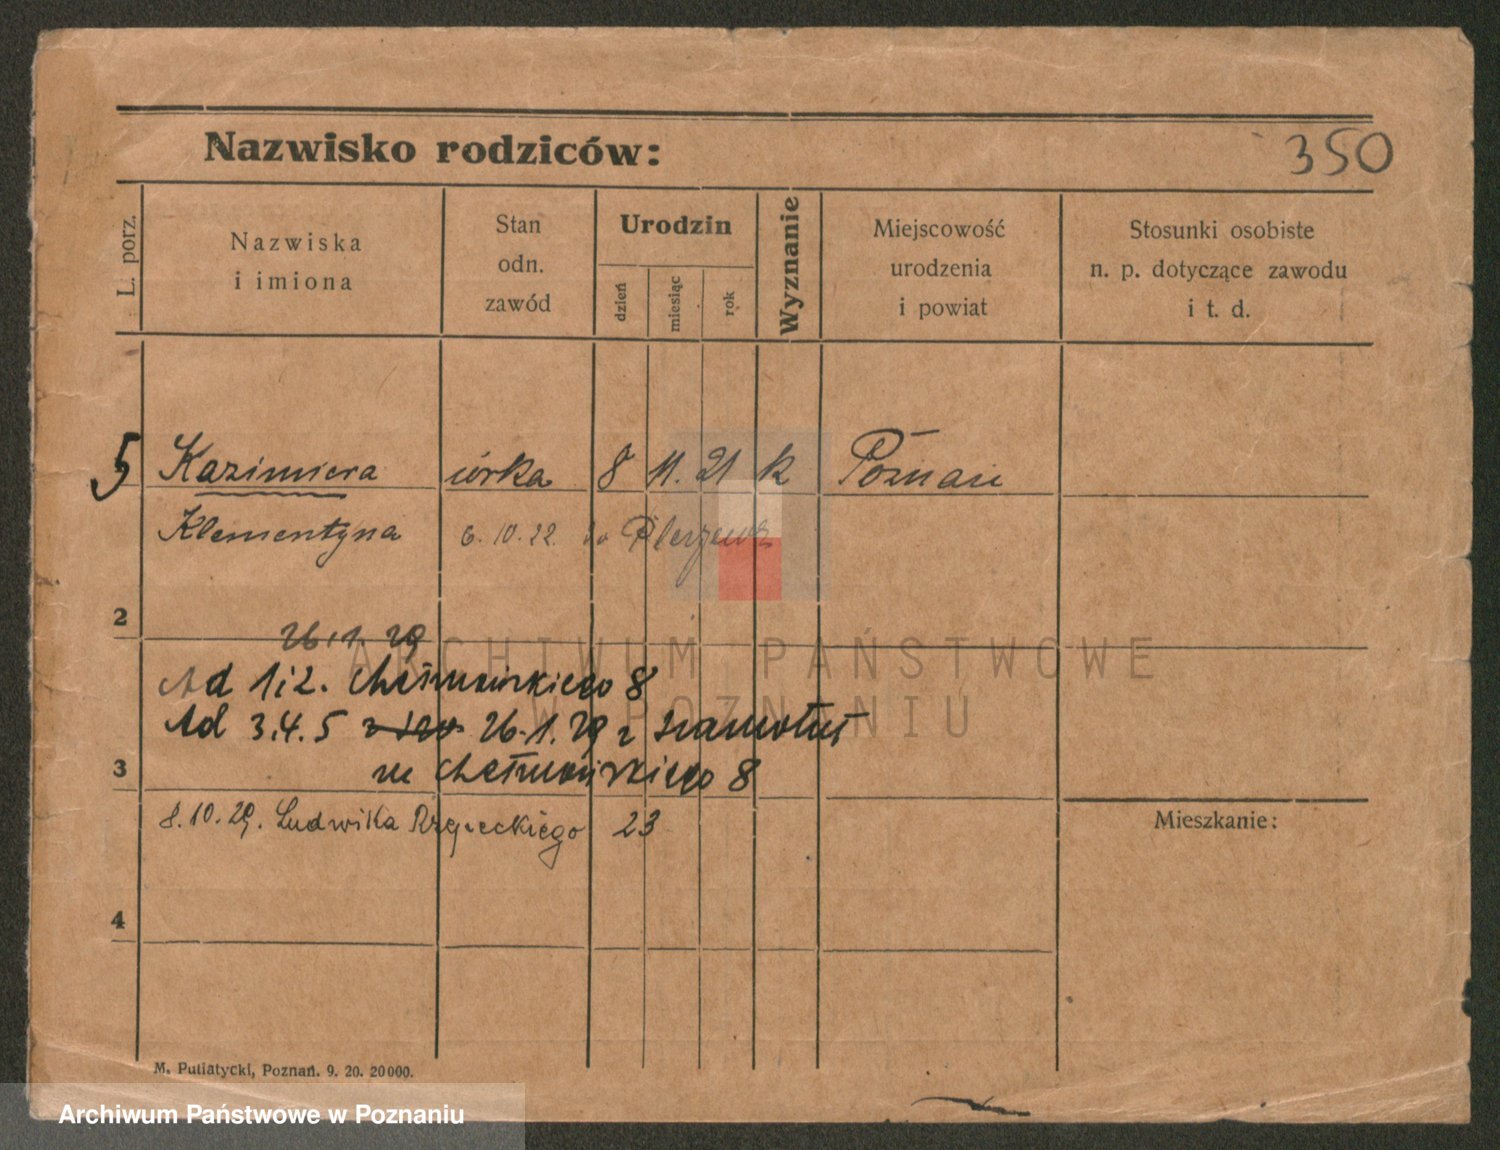 Nazwisko rodziców:
350
L. porz.
Nazwiska
i imiona
Stan
odn.
zawód
Urodzin
dzień
miesiąc
rok
Wyznanie
Miejscowość
urodzenia
i powiat
Stosunki osobiste
n. p. dotyczące zawodu
i t. d.
5 Kazimiera córka 8 11. 21 k Poznań
Klementyna 6. 10. 22. do Pleszewa
2
26.1.29
Ad 1i2. Chełmońskiego 8
Ad 3.4.5 26.1.29 z Szamotuł
3
na Chełmońskiego 8
8.10.29. Ludwika Rzepeckiego 23
Mieszkanie:
4
M. Putiatycki, Poznań. 9. 20. 20000.
ARCHIWUM PAŃSTWOWE
W POZNANIU
Archiwum Państwowe w Poznaniu